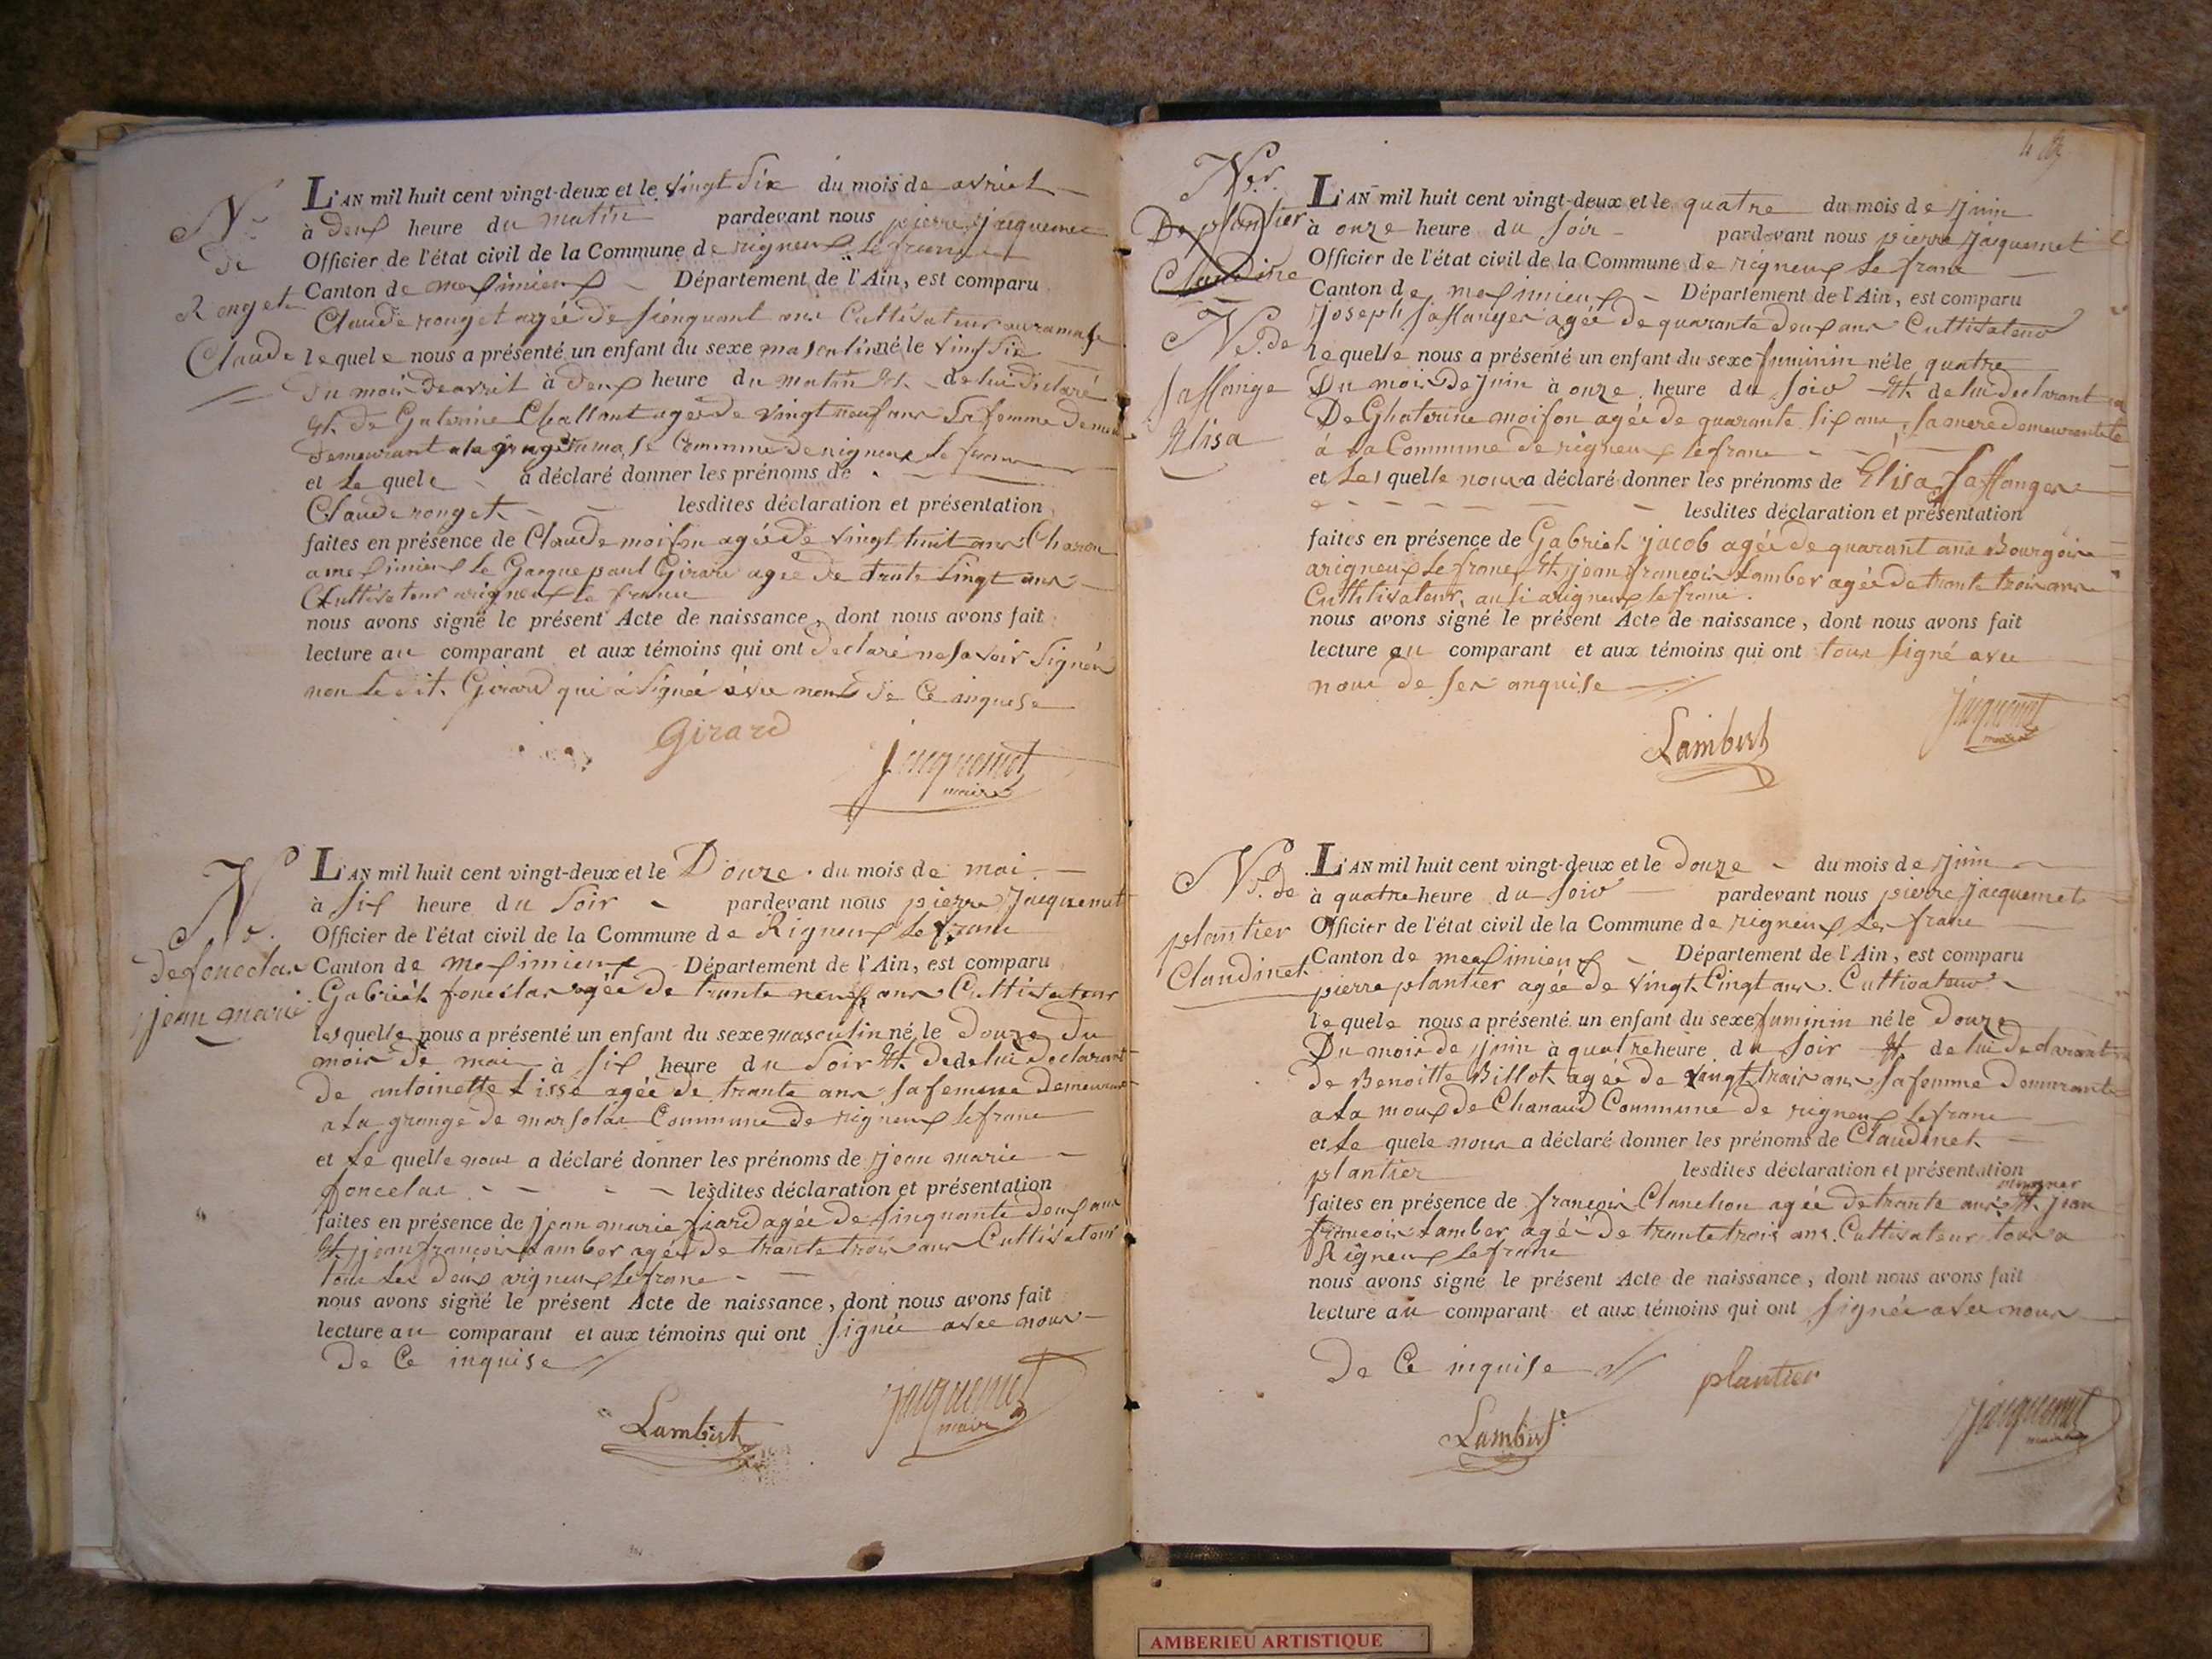 Nce
de
Ronget
Claude
L'AN mil huit cent vingt-deux et le vingt six du mois de avriel
à deux heure du matin pardevant nous pierre jacquemet
Officier de l'état civil de la Commune de rigneux le franc
Canton de meximieux Département de l'Ain, est comparu
Claude ronget agée de sienquant ans Cultivateur au ramasse
le quele nous a présenté un enfant du sexe masculin né le vingt six
du mois de avril à deux heure du matin Et de lui déclaré
Et de Challant agée de vingt neuf ans sa femme
demeurant a la Commune de rigneux le franc
et le quele a déclaré donner les prénoms de
Claude ronget lesdites déclaration et présentation
faites en présence de Claude moifon agée de vingt huit ans Charon
a meximieux Le paul Girard agée de trante singt ans
Cultivateur arigneux le franc
nous avons signé le présent Acte de naissance, dont nous avons fait
lecture au comparant et aux témoins qui ont declaré ne savoir signer
non le dit. Girard qui à signée avee nous de Ce inquise
Girard
jacquemet
maire
No
Ne.
de foncelas
jean marie
L'AN mil huit cent vingt-deux et le Douze du mois de mai
à six heure du soir pardevant nous pierre Jacquemet
Officier de l'état civil de la Commune de Rigneux le franc
Canton de meximieux Département de l'Ain, est comparu
Gabriel foncelas agée de trante neuf ans Cultivateur
les quelle nous a présenté un enfant du sexe masculin né le Douze Du
mois de mai à six heure du soir Et de de lui declarant
de antoinette Lisse agée de trante ans sa femme demeurant
a la grange de marsolas Commune de rigneux le franc
et le quelle nous a déclaré donner les prénoms de jean marie
foncelas lesdites déclaration et présentation
faites en présence de jean marie fiard agée de sinquante deux ans
Et jean françois Lamber agée de trante trois ans Cultivateur
tous les deux arigneux le franc
nous avons signé le présent Acte de naissance, dont nous avons fait
lecture au comparant et aux témoins qui ont signée avee nous
de Ce inquise
Lambert
jacquemet
maire
De plantier
Claudine
Ne. de
saffange
Elisa
L'AN mil huit cent vingt-deux et le quatre du mois de juin
à onze heure du soir pardevant nous pierre jacquemet
Officier de l'état civil de la Commune de rigneux le franc
Canton de meximieux Département de l'Ain, est comparu
joseph saffanger agée de quarante deux ans Cultivateur
le quelle nous a présenté un enfant du sexe fuminin né le quatre
Du mois de juin à onze heure du soir Et de lui declarant
De Ghaterine moifon agée de quarante six ans, sa mere demeurante
à la Commune de rigneux le franc
et les quelle nous a déclaré donner les prénoms de Elisa saffanger
lesdites déclaration et présentation
faites en présence de Gabriel jacob agée de quarant ans Bourgois
arigneux le franc Et jean françois Lamber agée de trante trois ans
Cultivateur, ausi arigneux le franc.
nous avons signé le présent Acte de naissance, dont nous avons fait
lecture au comparant et aux témoins qui ont tous signé avee
nous de ses anquise
Lambert
jacquemet
maire
Ne. de
plantier
Claudinet
L'AN mil huit cent vingt-deux et le douze du mois de juin
à quatre heure du soir pardevant nous pierre jacquemet
Officier de l'état civil de la Commune de rigneux le franc
Canton de meximieux Département de l'Ain, est comparu
pierre plantier agée de vingt singt ans. Cultivateur
le quele nous a présenté un enfant du sexe fuminin né le douze
Du mois de juin à quatre heure du soir Et de lui declarant
de Benoitte Billot agée de vingt trois ans sa femme demurante
a la moux de Chanaud Commune de rigneux le franc
et le quele nous a déclaré donner les prénoms de Claudinet
plantier lesdites déclaration et présentation
faites en présence de françois Clanchon agée de trante ans Et jean
françois Lamber agée de trante trois ans. Cultivateur tous a
Rigneux le franc
nous avons signé le présent Acte de naissance, dont nous avons fait
lecture au comparant et aux témoins qui ont signée avee nous
de Ce inquise
plantier
Lambert
jacquemet
maire
AMBERIEU ARTISTIQUE